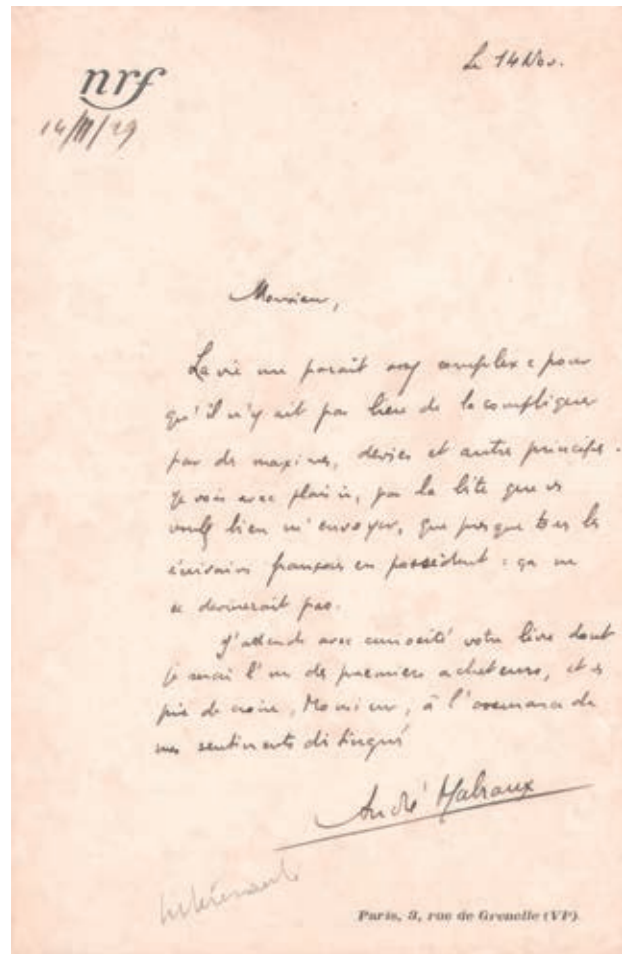 nrf
Le 14 Nov.
14/11/29
Monsieur,
La vie me parait assez complexe pour
qu'il n'y ait pas lieu de la compliquer
par des maximes, devises et autres principes.
Je vois avec plaisir, par la liste que vs
voulez bien m'envoyer, que presque tous les
écrivains français en possèdent : ça ne
se devinerait pas.
J'attends avec curiosité votre livre dont
je serai l'un des premiers acheteurs, et vs
prie de croire, Monsieur, à l'assurance de
mes sentiments distingués
André Malraux
Intéressante
Paris, 3, rue de Grenelle (VIe)